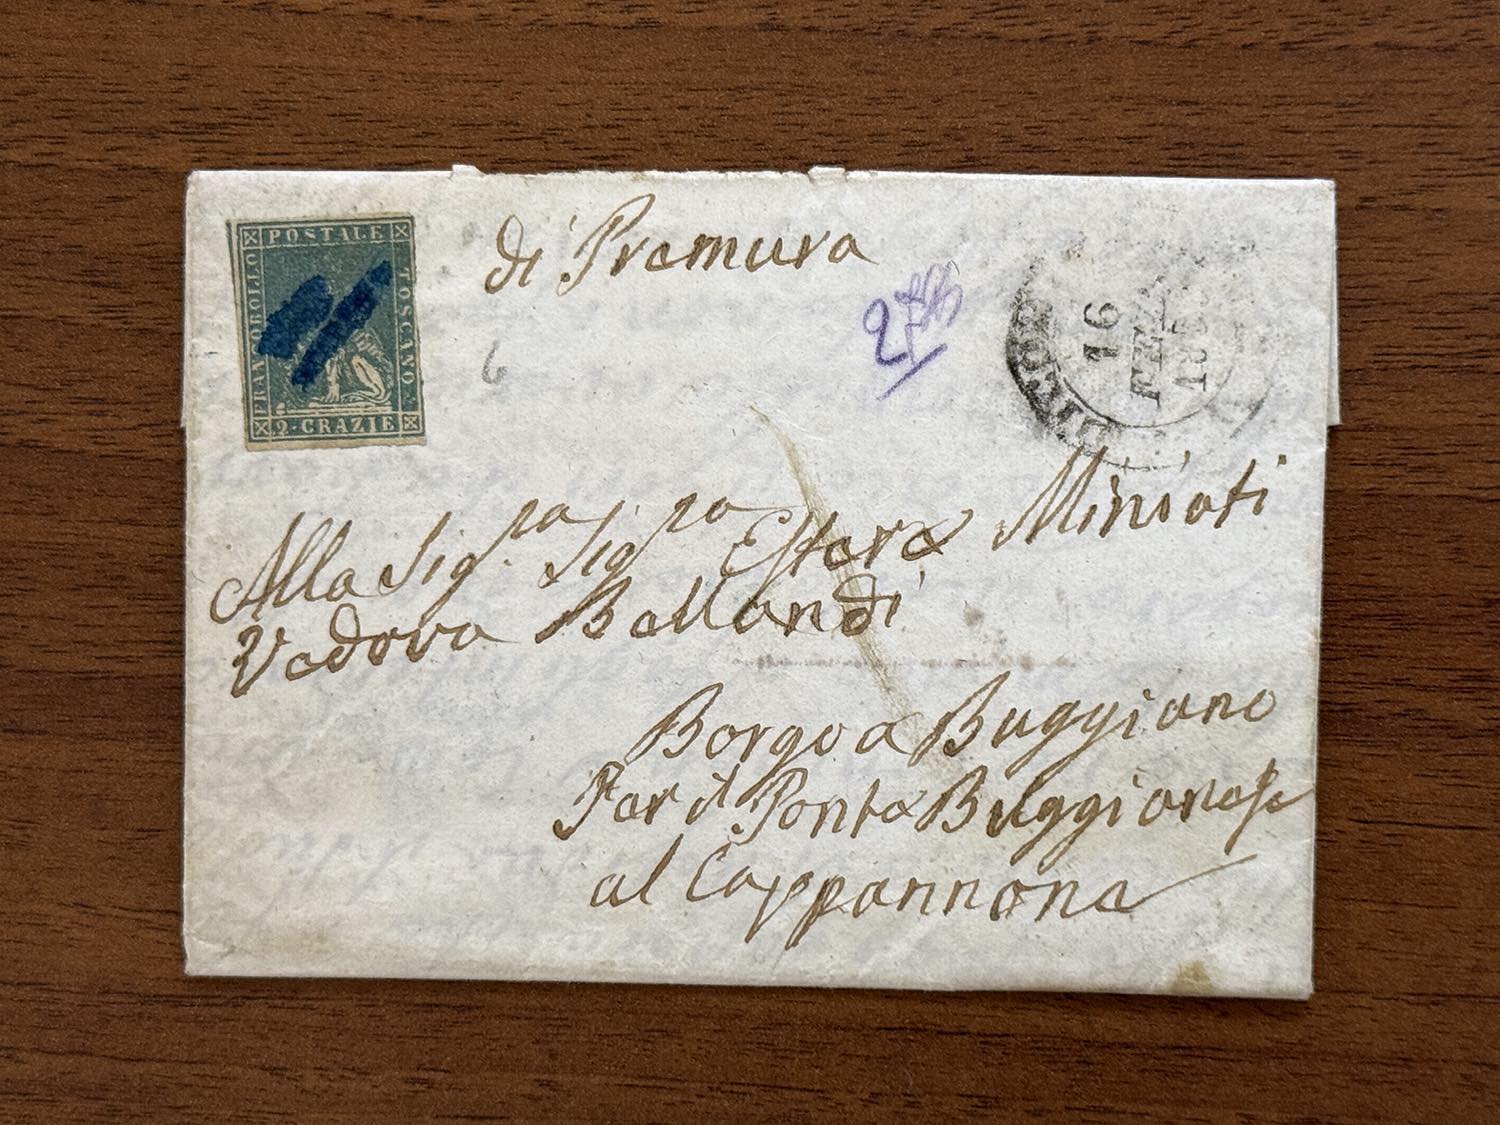 POSTALE
FRANCOBOLLO
TOSCANO
2·CRAZIE
di Premura
6
2
16
FEB
18
Alla Sig.ra Sig.ra Estere Miniati
Vedova Bellandi
Borgo a Buggiano
Per il Ponte Buggianese
al Cappannone